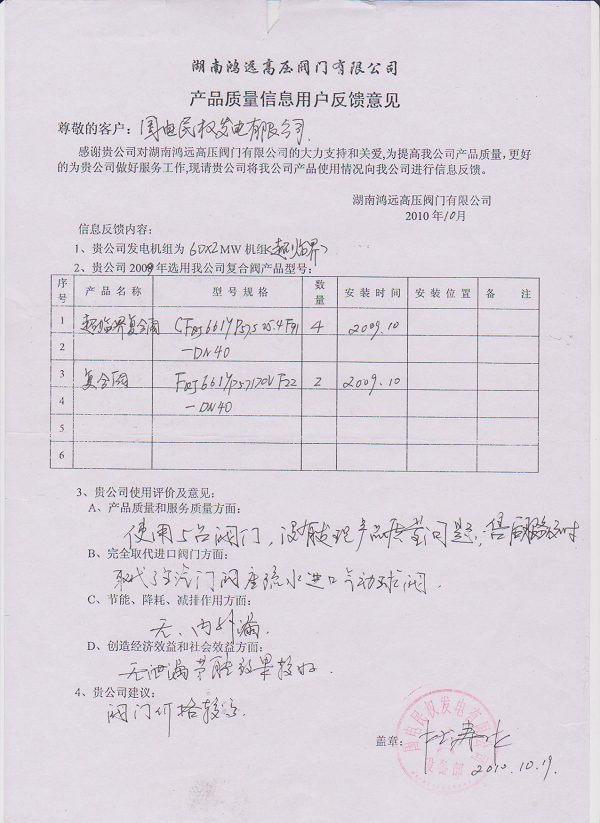 湖南鸿远高压阀门有限公司
产品质量信息用户反馈意见
尊敬的客户：国电民权发电有限公司
感谢贵公司对湖南鸿远高压阀门有限公司的大力支持和关爱,为提高我公司产品质量,更好
的为贵公司做好服务工作,现请贵公司将我公司产品使用情况向我公司进行信息反馈。
湖南鸿远高压阀门有限公司
2010年10月
信息反馈内容:
1、贵公司发电机组为60X2MW机组<超临界>
2、贵公司2009年选用我公司复合阀产品型号:
序号 产品名称 型号规格 数量 安装时间 安装位置 备注
1 超临界复合阀 4 2009.10
2 —DN40
3 复合阀 2 2009.10
4 —DN40
5
6
3、贵公司使用评价及意见:
A、产品质量和服务质量方面:
使用5台阀门，没有发现产品质量问题，售后服务及时
B、完全取代进口阀门方面:
取代了汽门阀座疏水进口气动球阀.
C、节能、降耗、减排作用方面:
无、内外漏.
D、创造经济效益和社会效益方面:
无泄漏节能效果较好.
4、贵公司建议:
阀门价格较高
盖章:
国电民权发电有限公司
设备部
2010.10.19.